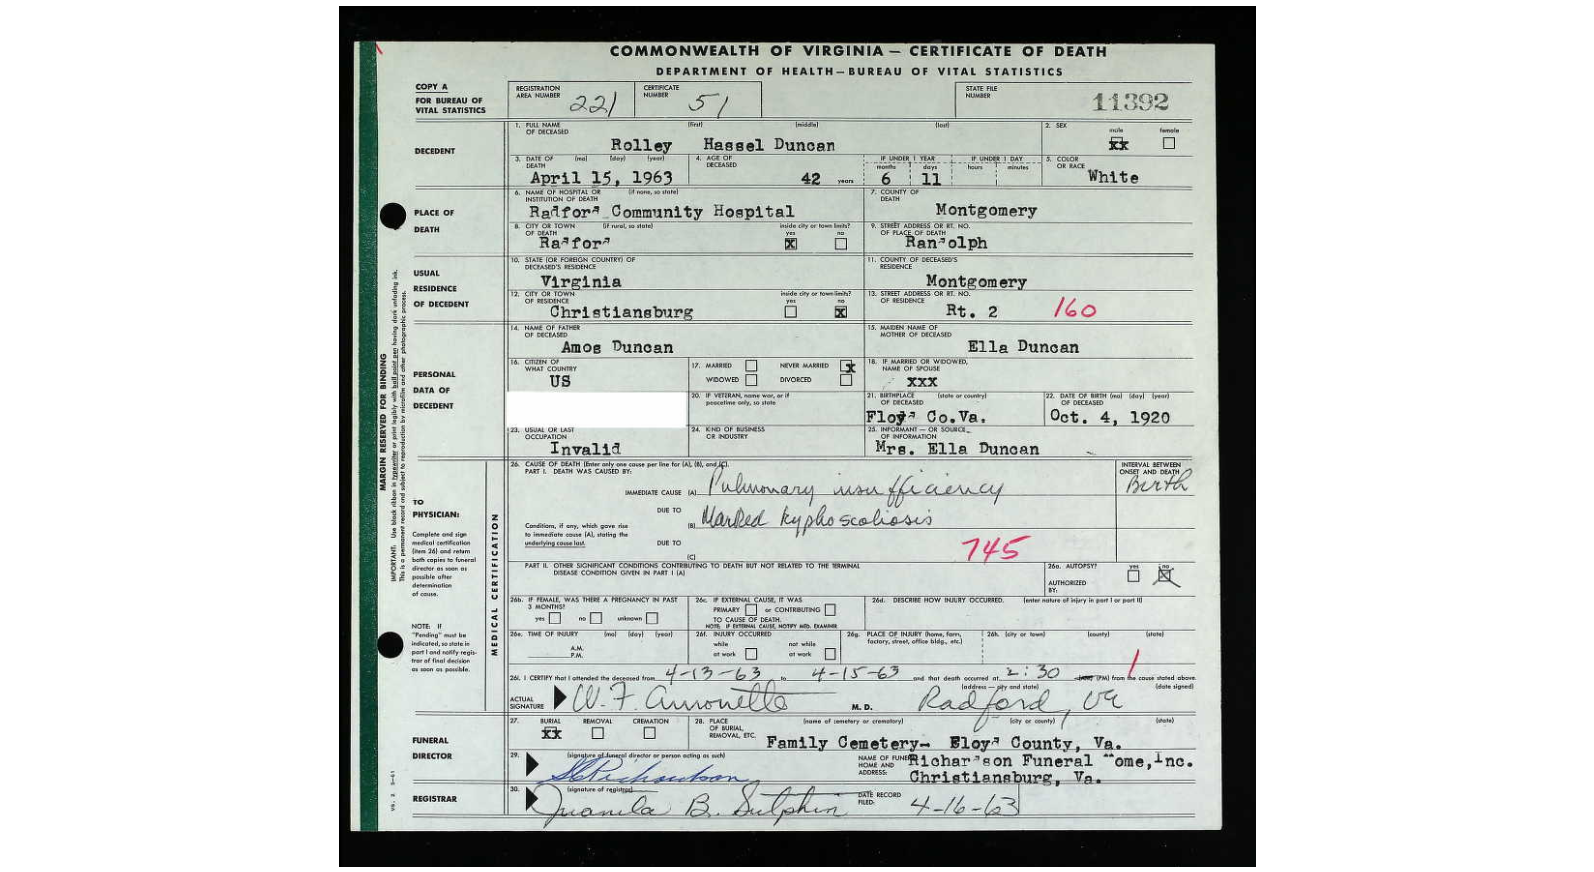 COMMONWEALTH OF VIRGINIA — CERTIFICATE OF DEATH
DEPARTMENT OF HEALTH—BUREAU OF VITAL STATISTICS
COPY A
FOR BUREAU OF
VITAL STATISTICS
REGISTRATION
AREA NUMBER 221
CERTIFICATE
NUMBER 51
STATE FILE
NUMBER 11392
DECEDENT
1. FULL NAME
OF DECEASED (first) (middle) (last)
Rolley Hassel Duncan
2. SEX male female
xx
3. DATE OF DEATH (mo) (day) (year)
April 15, 1963
4. AGE OF
DECEASED
42 years
IF UNDER 1 YEAR IF UNDER 1 DAY
months days hours minutes
6 11
5. COLOR
OR RACE White
PLACE OF
DEATH
6. NAME OF HOSPITAL OR (if none, so state)
INSTITUTION OF DEATH
Radford Community Hospital
7. COUNTY OF
DEATH
Montgomery
8. CITY OR TOWN (if rural, so state)
OF DEATH inside city or town limits?
yes no
Radford X
9. STREET ADDRESS OR RT. NO.
OF PLACE OF DEATH
Randolph
USUAL
RESIDENCE
OF DECEDENT
10. STATE (OR FOREIGN COUNTRY) OF
DECEASED'S RESIDENCE
Virginia
11. COUNTY OF DECEASED'S
RESIDENCE
Montgomery
12. CITY OR TOWN
OF RESIDENCE inside city or town limits?
yes no
Christiansburg X
13. STREET ADDRESS OR RT. NO.
OF RESIDENCE
Rt. 2 160
PERSONAL
DATA OF
DECEDENT
14. NAME OF FATHER
OF DECEASED
Amos Duncan
15. MAIDEN NAME OF
MOTHER OF DECEASED
Ella Duncan
16. CITIZEN OF
WHAT COUNTRY
US
17. MARRIED NEVER MARRIED x
WIDOWED DIVORCED
18. IF MARRIED OR WIDOWED,
NAME OF SPOUSE
xxx
20. IF VETERAN, name war, or if
peacetime only, so state
21. BIRTHPLACE (state or country)
OF DECEASED
Floyd Co.Va.
22. DATE OF BIRTH (mo) (day) (year)
OF DECEASED
Oct. 4, 1920
23. USUAL OR LAST
OCCUPATION
Invalid
24. KIND OF BUSINESS
OR INDUSTRY
25. INFORMANT — OR SOURCE
OF INFORMATION
Mrs. Ella Duncan
MARGIN RESERVED FOR BINDING
IMPORTANT: Use black ribbon in typewriter or print legibly with ball point pen having dark unfading ink.
This is a permanent record and subject to reproduction by microfilm and other photographic process.
TO
PHYSICIAN:
Complete and sign
medical certification
(item 26) and return
both copies to funeral
director as soon as
possible after
determination
of cause.
NOTE: If
"Pending" must be
indicated, so state in
part I and notify regis-
trar of final decision
as soon as possible.
MEDICAL CERTIFICATION
26. CAUSE OF DEATH (Enter only one cause per line for (A), (B), and (C).
PART I. DEATH WAS CAUSED BY:
INTERVAL BETWEEN
ONSET AND DEATH
IMMEDIATE CAUSE (A) Pulmonary insufficiency Birth
DUE TO
(B) Marked kyphoscoliosis
Conditions, if any, which gave rise
to immediate cause (A), stating the
underlying cause last. DUE TO
(C)
745
PART II. OTHER SIGNIFICANT CONDITIONS CONTRIBUTING TO DEATH BUT NOT RELATED TO THE TERMINAL
DISEASE CONDITION GIVEN IN PART I (A)
26a. AUTOPSY? yes no
X
AUTHORIZED
BY:
26b. IF FEMALE, WAS THERE A PREGNANCY IN PAST
3 MONTHS?
yes no unknown
26c. IF EXTERNAL CAUSE, IT WAS
PRIMARY or CONTRIBUTING
TO CAUSE OF DEATH.
NOTE: IF EXTERNAL CAUSE, NOTIFY MED. EXAMINER
26d. DESCRIBE HOW INJURY OCCURRED. (enter nature of injury in part I or part II)
26e. TIME OF INJURY (mo) (day) (year)
A.M.
P.M.
26f. INJURY OCCURRED
while not while
at work at work
26g. PLACE OF INJURY (home, farm,
factory, street, office bldg., etc.)
26h. (city or town) (county) (state)
26i. I CERTIFY that I attended the deceased from 4-13-63 to 4-15-63 and that death occurred at 2:30 (AM) (PM) from the cause stated above.
ACTUAL
SIGNATURE M. D. (address — city and state) (date signed)
Radford, Va
FUNERAL
DIRECTOR
27. BURIAL REMOVAL CREMATION
xx
28. PLACE
OF BURIAL,
REMOVAL, ETC. (name of cemetery or crematory) (city or county) (state)
Family Cemetery- Floyd County, Va.
29. (signature of funeral director or person acting as such)
NAME OF FUNERAL
HOME AND
ADDRESS: Richardson Funeral Home,Inc.
Christiansburg, Va.
REGISTRAR
30. (signature of registrar)
Juanita B. Sutphin
DATE RECORD
FILED: 4-16-63